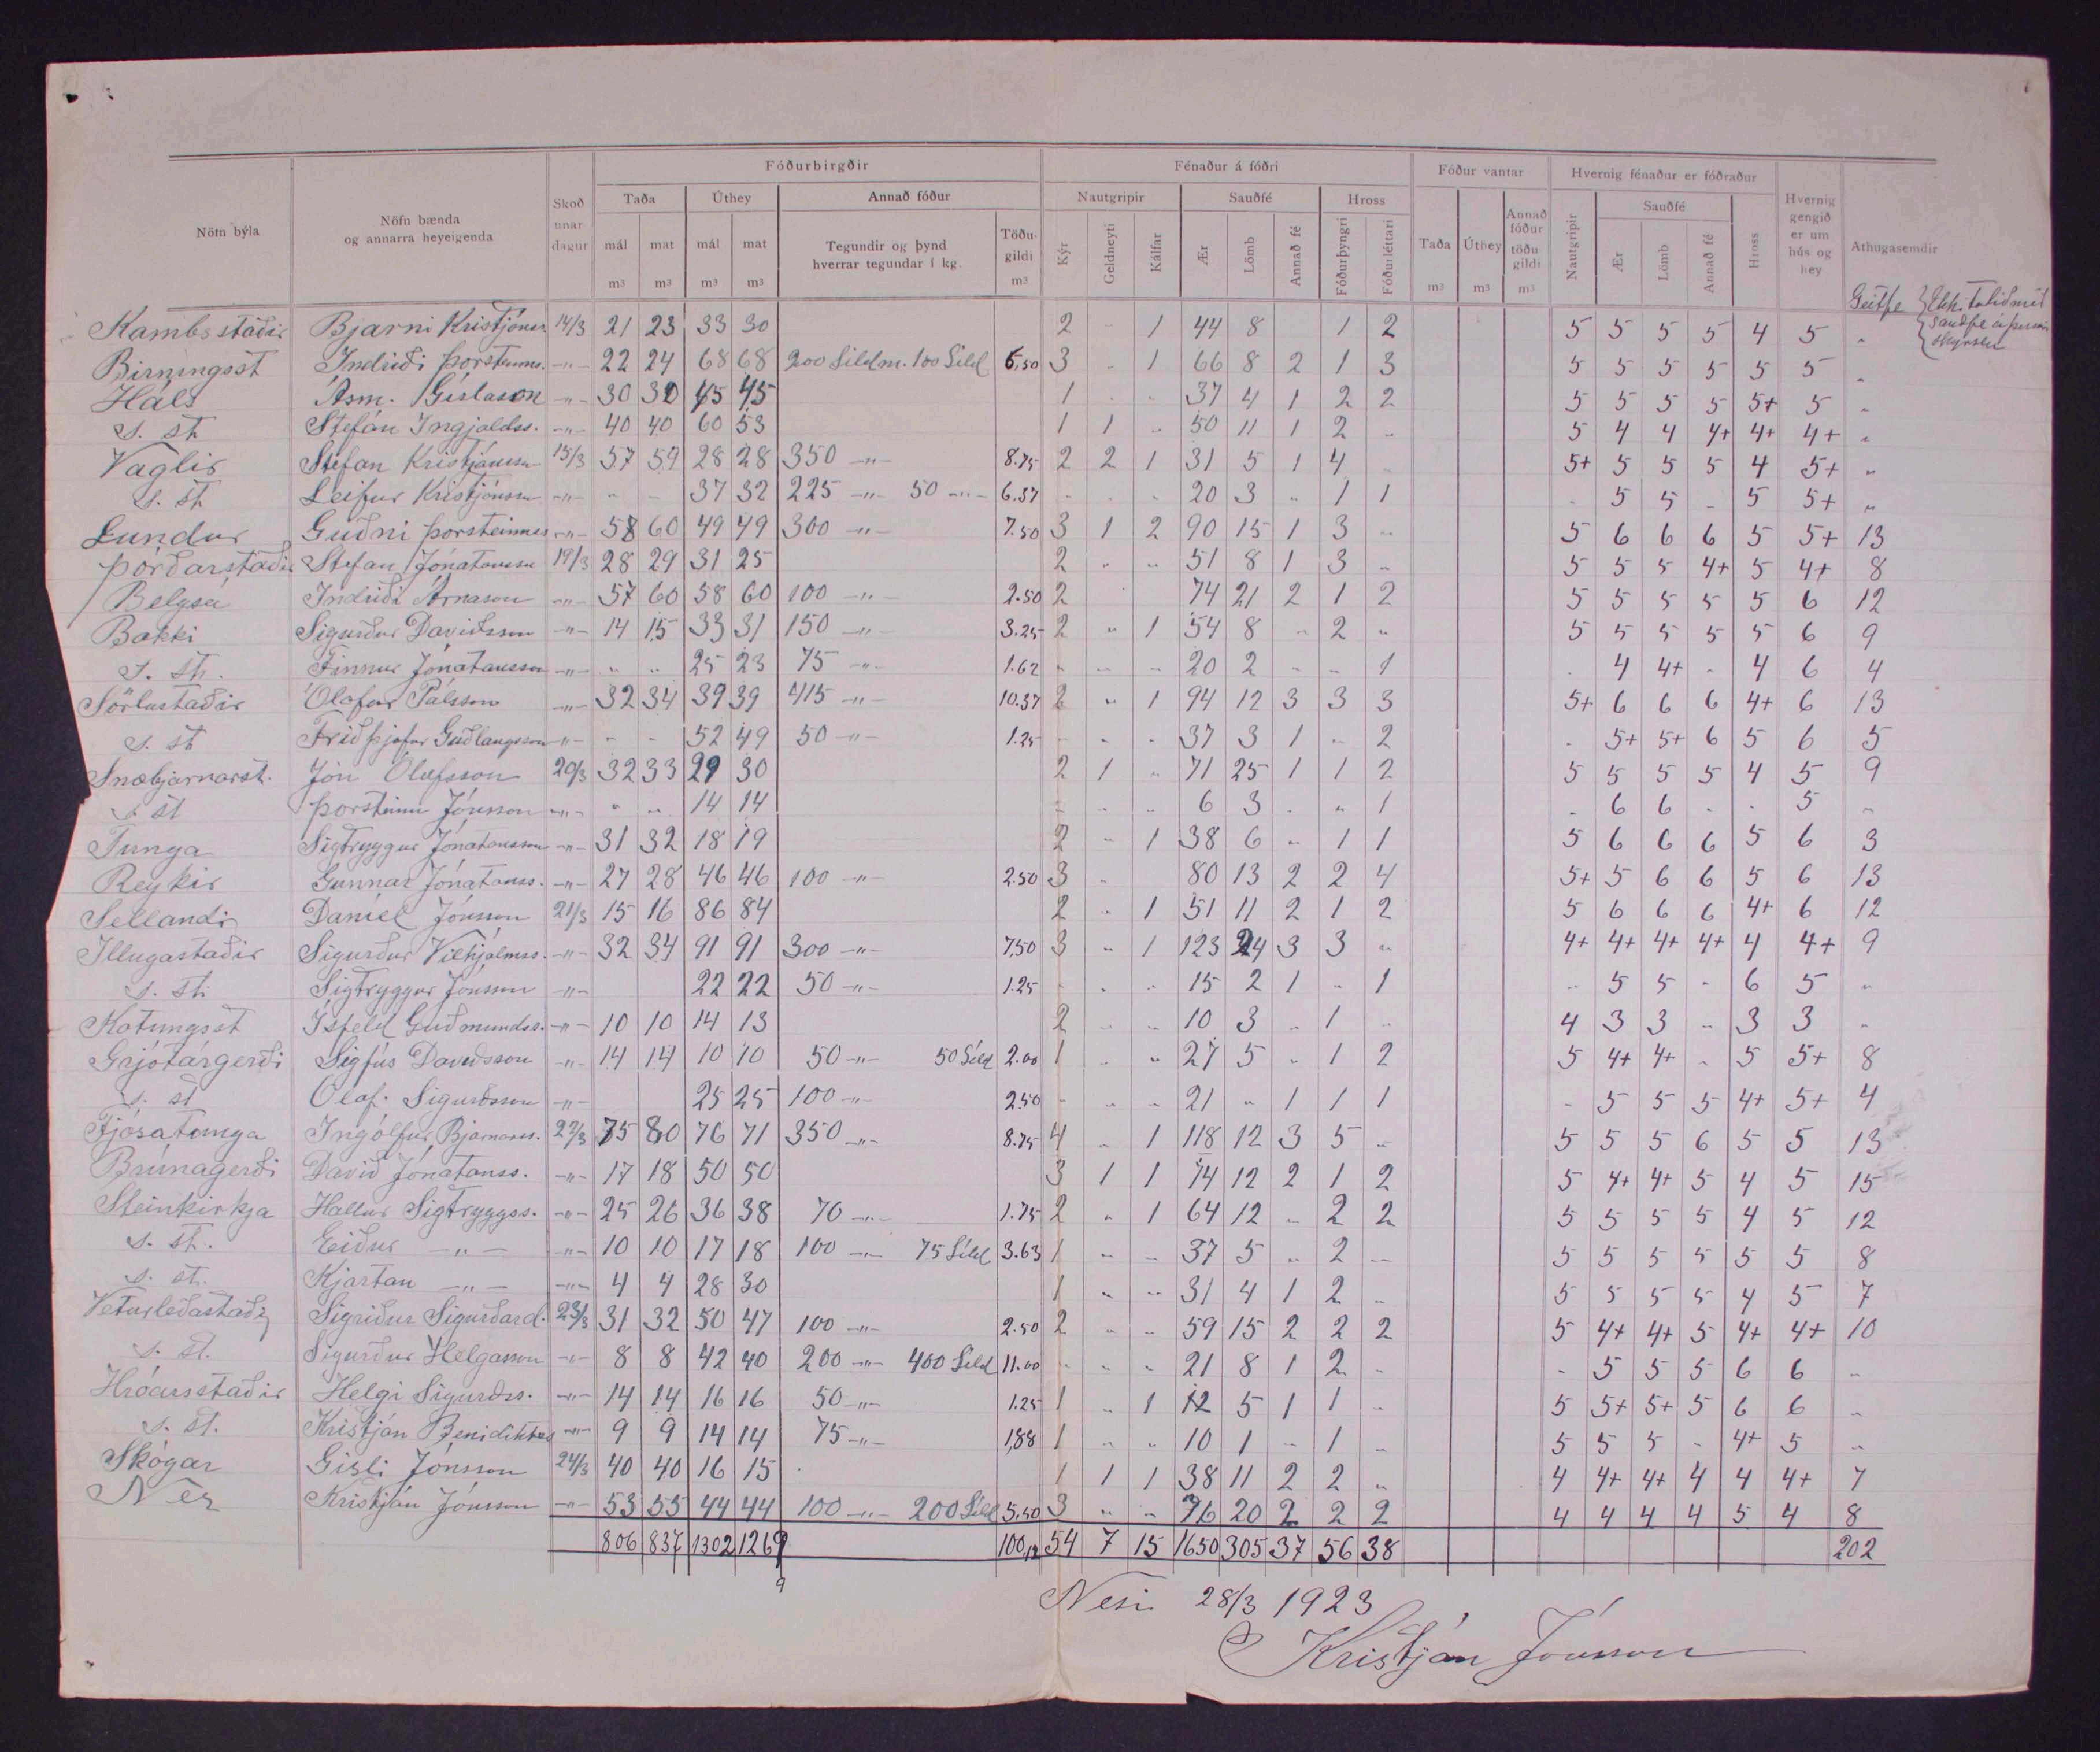 Nöfn býla | Nöfn bænda og annarra heyeigenda | Skoð unar dagur | Fóðurbirgðir | Fénaður á fóðri | Fóður vantar | Hvernig fénaður er fóðraður | Hvernig gengið er um hús og hey | Athugasemdir
Taða | Úthey | Annað fóður | Nautgripir | Sauðfé | Hross | Taða | Úthey | Annað fóður töðu gildi | Nautgripir | Sauðfé | Hross
mál m³ | mat m³ | mál m³ | mat m³ | Tegundir og þynd hverrar tegundar í kg. | Töðu-gildi m³ | Kýr | Geldneyti | Kálfar | Ær | Lömb | Annað fé | Fóðurþyngri | Fóðurléttari | m³ | m³ | m³ | Ær | Lömb | Annað fé
Geitfe { Ekki talið með sauðfe á þessari skyrslu
Kambsstaðir | Bjarni Kristjónss | 14/3 | 21 | 23 | 33 | 30 | 2 | " | 1 | 44 | 8 | 1 | 2 | 5 | 5 | 5 | 5 | 4 | 5 | "
Birningsst | Indriði Þorsteinns. | -"- | 22 | 24 | 68 | 68 | 200 Síldm. 100 Síld | 6,50 | 3 | " | 1 | 66 | 8 | 2 | 1 | 3 | 5 | 5 | 5 | 5 | 5 | 5 | "
Háls | Ásm. Gíslason | -"- | 30 | 30 | 45 | 45 | 1 | " | " | 37 | 4 | 1 | 2 | 2 | 5 | 5 | 5 | 5 | 5+ | 5 | "
s. st | Stefán Ingjaldss. | -"- | 40 | 40 | 60 | 53 | 1 | 1 | " | 50 | 11 | 1 | 2 | " | 5 | 4 | 4 | 4+ | 4+ | 4+ | "
Vaglir | Stefan Kristjánsson | 15/3 | 57 | 59 | 28 | 28 | 350 -"- | 8.75 | 2 | 2 | 1 | 31 | 5 | 1 | 4 | 5+ | 5 | 5 | 5 | 4 | 5+ | "
s. st | Leifur Kristjónsson | -"- | " | " | 37 | 32 | 225 -"- 50 -"- | 6.37 | " | " | " | 20 | 3 | " | 1 | 1 | " | 5 | 5 | " | 5 | 5+ | "
Lundur | Guðni Þorsteinnss | -"- | 58 | 60 | 49 | 49 | 300 -"- | 7.50 | 3 | 1 | 2 | 90 | 15 | 1 | 3 | " | 5 | 6 | 6 | 6 | 5 | 5+ | 13
Þórðarstaðir | Stefan Jónatansson | 19/3 | 28 | 29 | 31 | 25 | 2 | " | " | 51 | 8 | 1 | 3 | " | 5 | 5 | 5 | 4+ | 5 | 4+ | 8
Belgsá | Indriði Árnason | -"- | 57 | 60 | 58 | 60 | 100 -"- | 2.50 | 2 | 74 | 21 | 2 | 1 | 2 | 5 | 5 | 5 | 5 | 5 | 6 | 12
Bakki | Sigurður Davíðsson | -"- | 14 | 15 | 33 | 31 | 150 -"- | 3.25 | 2 | " | 1 | 54 | 8 | " | 2 | " | 5 | 5 | 5 | 5 | 5 | 6 | 9
s. st. | Finnur Jónatansson | -"- | " | " | 25 | 23 | 75 -"- | 1.62 | " | " | " | 20 | 2 | " | " | 1 | " | 4 | 4+ | " | 4 | 6 | 4
Sörlustaðir | Ólafur Pálsson | -"- | 32 | 34 | 39 | 39 | 415 -"- | 10.37 | 2 | " | 1 | 94 | 12 | 3 | 3 | 3 | 5+ | 6 | 6 | 6 | 4+ | 6 | 13
s. st | Friðþjofur Guðlaugsson | -"- | " | " | 52 | 49 | 50 -"- | 1.25 | " | " | " | 37 | 3 | 1 | " | 2 | " | 5+ | 5+ | 6 | 5 | 6 | 5
Snæbjarnarst. | Jón Ólafsson | 20/3 | 32 | 33 | 29 | 30 | 2 | 1 | " | 71 | 25 | 1 | 1 | 2 | 5 | 5 | 5 | 5 | 4 | 5 | 9
s st | Þorsteinn Jónsson | -"- | " | " | 14 | 14 | " | " | " | 6 | 3 | " | " | 1 | " | 6 | 6 | " | " | 5 | "
Tunga | Sigtryggur Jónatansson | -"- | 31 | 32 | 18 | 19 | 2 | " | 1 | 38 | 6 | " | 1 | 1 | 5 | 6 | 6 | 6 | 5 | 6 | 3
Reykir | Gunnar Jónatanss. | -"- | 27 | 28 | 46 | 46 | 100 -"- | 2.50 | 3 | " | 80 | 13 | 2 | 2 | 4 | 5+ | 5 | 6 | 6 | 5 | 6 | 13
Sellandi | Daníel Jónsson | 21/3 | 15 | 16 | 86 | 84 | 2 | " | 1 | 51 | 11 | 2 | 1 | 2 | 5 | 6 | 6 | 6 | 4+ | 6 | 12
Illugastaðir | Sigurður Vilhjalmss. | -"- | 32 | 34 | 91 | 91 | 300 -"- | 7,50 | 3 | " | 1 | 123 | 24 | 3 | 3 | " | 4+ | 4+ | 4+ | 4+ | 4 | 4+ | 9
s. st. | Sigtryggur Jónsson | -"- | 22 | 22 | 50 -"- | 1.25 | " | " | " | 15 | 2 | 1 | " | 1 | " | 5 | 5 | " | 6 | 5 | "
Kotungsst | Ísfeld Guðmundss. | -"- | 10 | 10 | 14 | 13 | 2 | " | " | 10 | 3 | " | 1 | " | 4 | 3 | 3 | " | 3 | 3 | "
Grjótárgerði | Sigfús Davíðsson | -"- | 14 | 14 | 10 | 10 | 50 -"- 50 Síld | 2.00 | 1 | " | " | 27 | 5 | " | 1 | 2 | 5 | 4+ | 4+ | " | 5 | 5+ | 8
s. st | Ólaf. Sigurðsson | -"- | 25 | 25 | 100 -"- | 2.50 | " | " | " | 21 | " | 1 | 1 | 1 | " | 5 | 5 | 5 | 4+ | 5+ | 4
Fjósatunga | Ingólfur Bjarnars. | 22/3 | 75 | 80 | 76 | 71 | 350 -"- | 8.75 | 4 | " | 1 | 118 | 12 | 3 | 5 | " | 5 | 5 | 5 | 6 | 5 | 5 | 13
Brúnagerði | Davíð Jónatanss. | -"- | 17 | 18 | 50 | 50 | 3 | 1 | 1 | 74 | 12 | 2 | 1 | 2 | 5 | 4+ | 4+ | 5 | 4 | 5 | 15
Steinkirkja | Hallur Sigtryggss. | -"- | 25 | 26 | 36 | 38 | 70 -"- | 1.75 | 2 | " | 1 | 64 | 12 | " | 2 | 2 | 5 | 5 | 5 | 5 | 4 | 5 | 12
s. st. | Eiður -"- | -"- | 10 | 10 | 17 | 18 | 100 -"- 75 Síld | 3.63 | 1 | " | " | 37 | 5 | " | 2 | " | 5 | 5 | 5 | 5 | 5 | 5 | 8
s. st. | Kjartan -"- | -"- | 4 | 4 | 28 | 30 | 1 | " | " | 31 | 4 | 1 | 2 | " | 5 | 5 | 5 | 5 | 4 | 5 | 7
Veturleðastaðr | Sigríður Sigurðard. | 23/3 | 31 | 32 | 50 | 47 | 100 -"- | 2.50 | 2 | " | " | 59 | 15 | 2 | 2 | 2 | 5 | 4+ | 4+ | 5 | 4+ | 4+ | 10
s. st. | Sigurður Helgason | -"- | 8 | 8 | 42 | 40 | 200 -"- 400 Síld | 11.00 | " | " | " | 21 | 8 | 1 | 2 | " | " | 5 | 5 | 5 | 6 | 6 | "
Hróarsstaðir | Helgi Sigurðss. | -"- | 14 | 14 | 16 | 16 | 50 -"- | 1.25 | 1 | " | 1 | 12 | 5 | 1 | 1 | " | 5 | 5+ | 5+ | 5 | 6 | 6 | "
s. st. | Kristján Benidiktss | -"- | 9 | 9 | 14 | 14 | 75 -"- | 1,88 | 1 | " | " | 10 | 1 | " | 1 | " | 5 | 5 | 5 | " | 4+ | 5 | "
Skógar | Gisli Jónsson | 24/3 | 40 | 40 | 16 | 15 | 1 | 1 | 1 | 38 | 11 | 2 | 2 | " | 4 | 4+ | 4+ | 4 | 4 | 4+ | 7
Nes | Kristján Jónsson | -"- | 53 | 55 | 44 | 44 | 100 -"- 200 Síld | 5,50 | 3 | " | " | 76 | 20 | 2 | 2 | 2 | 4 | 4 | 4 | 4 | 5 | 4 | 8
806 | 837 | 1302 | 1269 | 100,12 | 54 | 7 | 15 | 1650 | 305 | 37 | 56 | 38 | 202
9
Nesi 28/3 1923
Kristján Jónsson